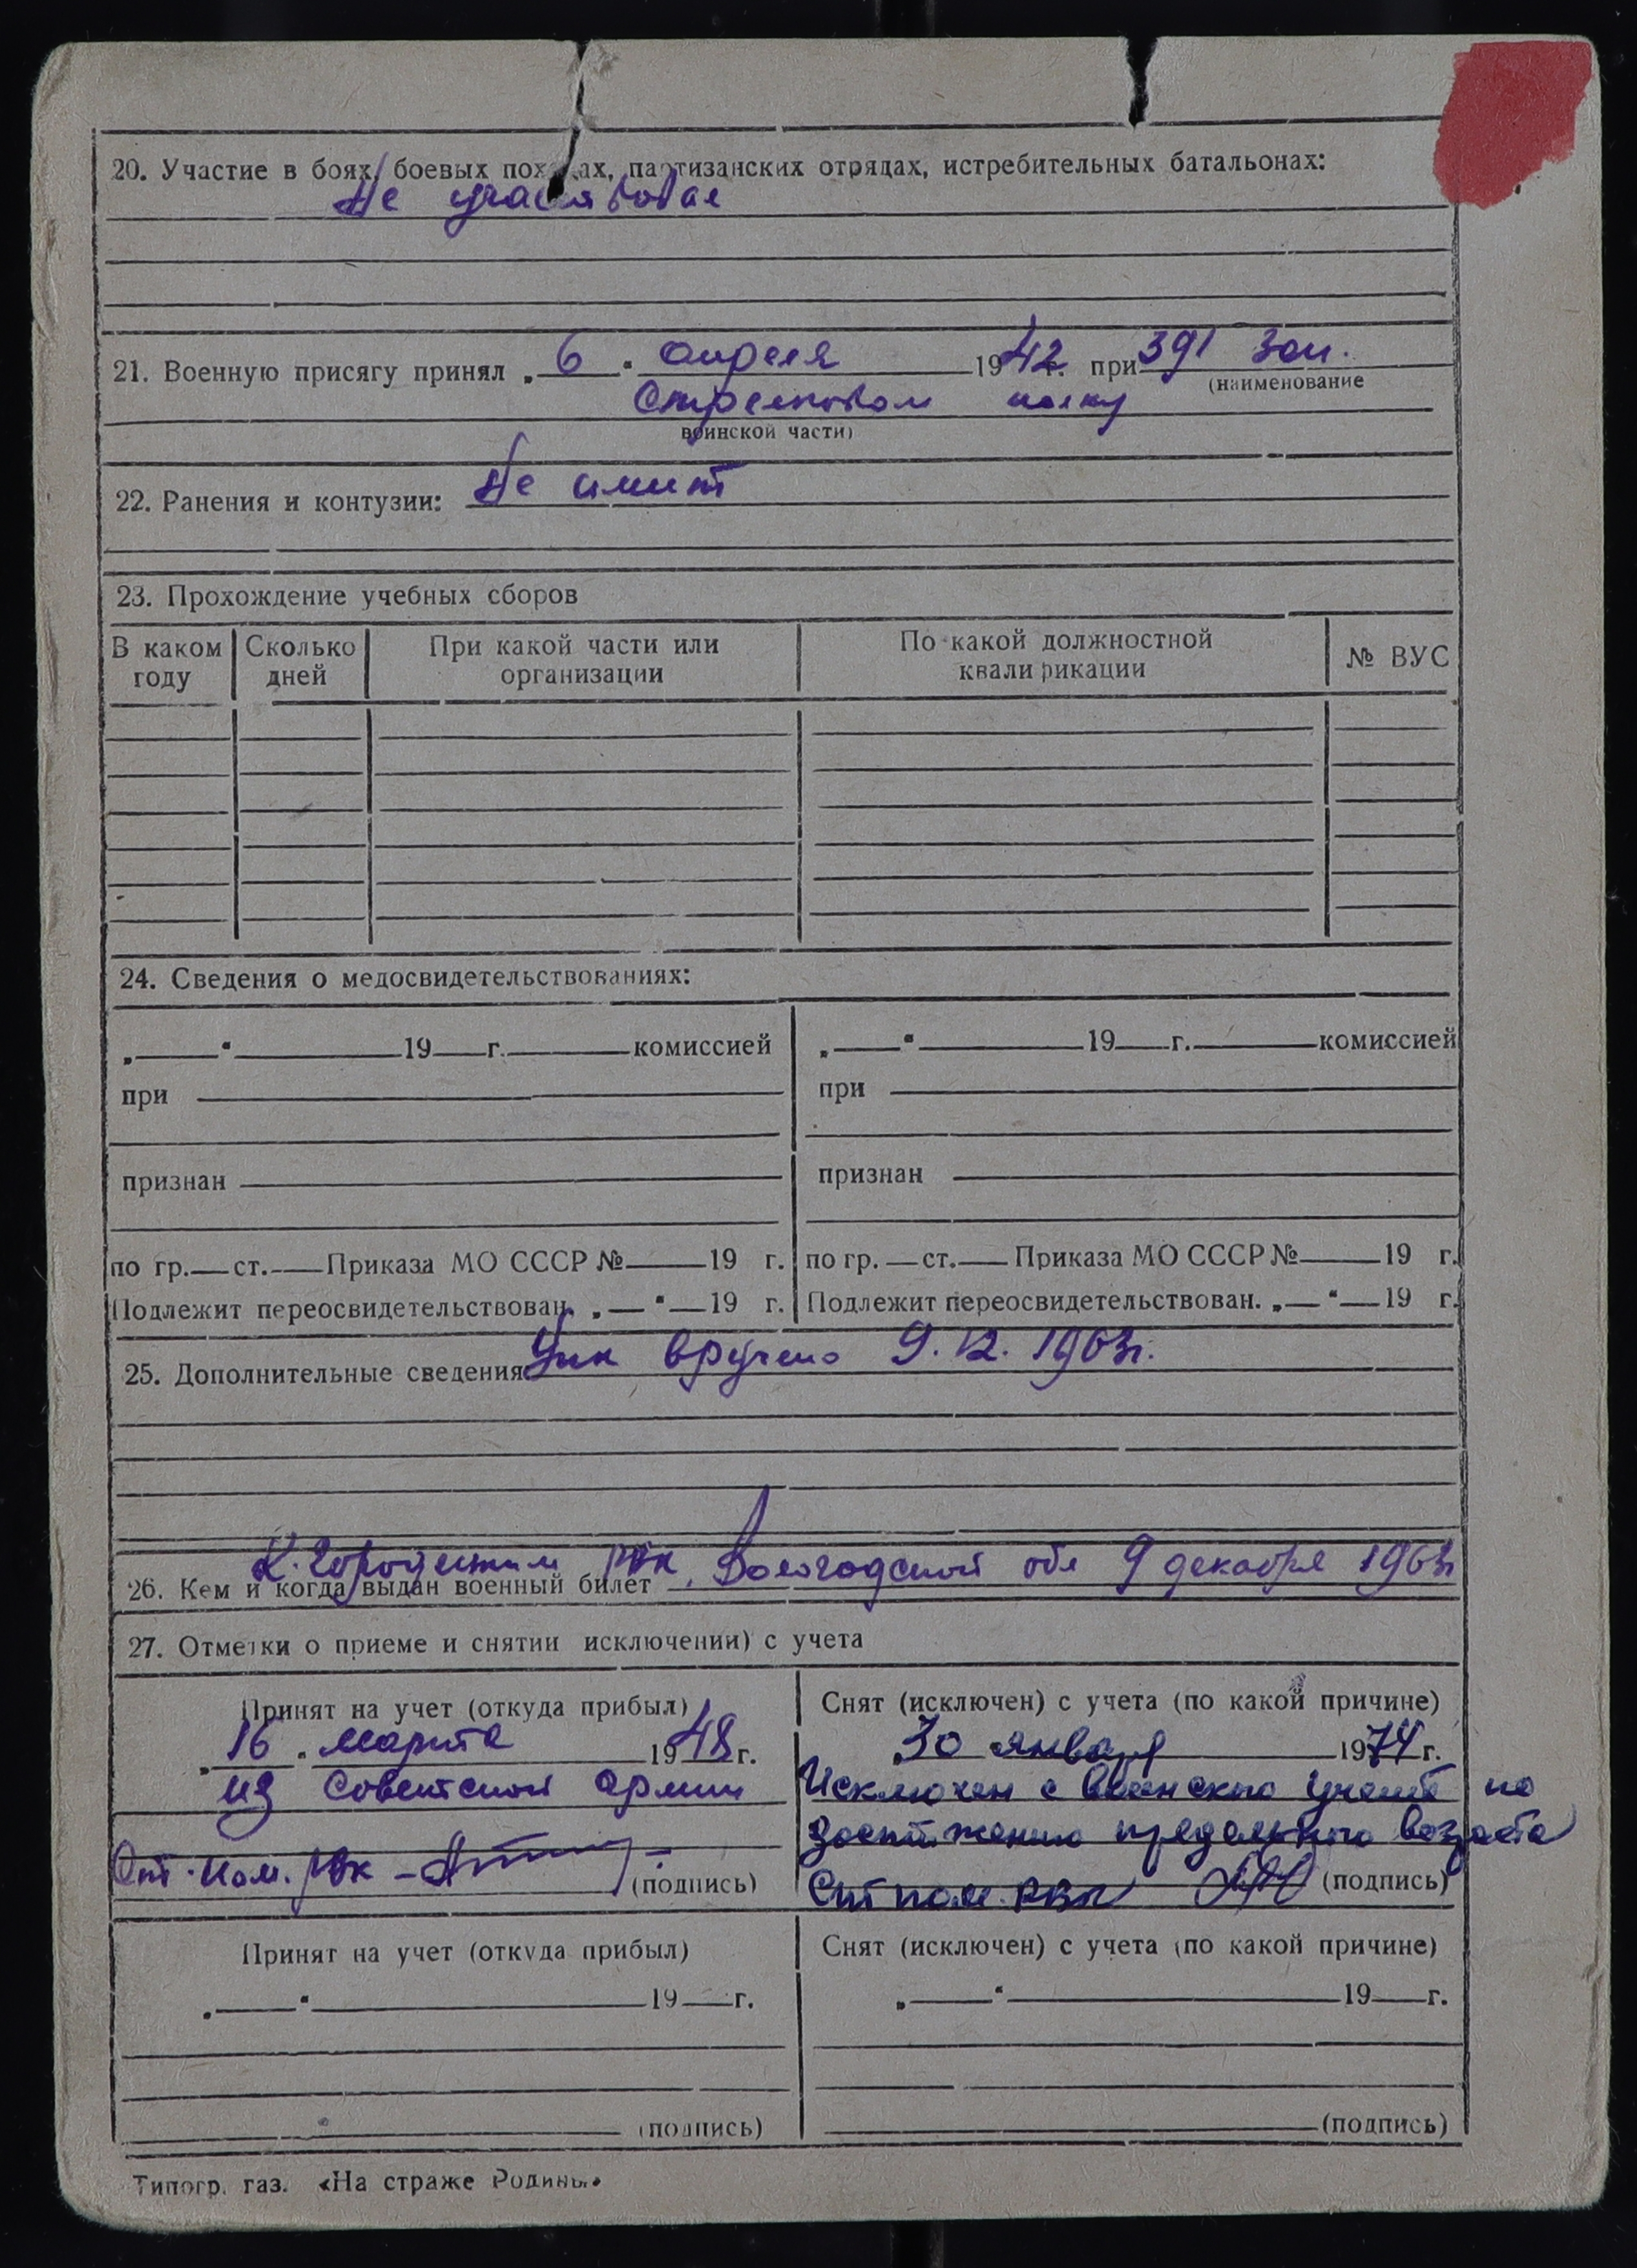 20. Участие в боях, боевых походах, партизанских отрядах, истребительных батальонах:
Не участвовал
21. Военную присягу принял „ 6 “ апреля 1942 г. при 391 Зап.
(наименование
Стрелковом полку
воинской части)
22. Ранения и контузии: Не имеет
23. Прохождение учебных сборов
В каком году Сколько дней При какой части или организации По какой должностной квалификации № ВУС
24. Сведения о медосвидетельствованиях:
„ “ 19 г. комиссией „ “ 19 г. комиссией
при при
признан признан
по гр. ст. Приказа МО СССР № 19 г. по гр. ст. Приказа МО СССР № 19 г.
Подлежит переосвидетельствован. „ “ 19 г. Подлежит переосвидетельствован. „ “ 19 г.
25. Дополнительные сведения вручено 9.12.1963г.
К. Городецким РВК, Вологодской обл 9 декабря 1963г
26. Кем и когда выдан военный билет
27. Отметки о приеме и снятии исключении) с учета
Принят на учет (откуда прибыл) Снят (исключен) с учета (по какой причине)
„ 16 “ марта 1948 г. „ 30 января 1974 г.
из Советской Армии Исключен с воинского учета по
достижению предельного возраста
Ст. пом. РВК (подпись) Ст пом. РВК (подпись)
Принят на учет (откуда прибыл) Снят (исключен) с учета (по какой причине)
„ “ 19 г. „ “ 19 г.
(подпись) (подпись)
Типогр. газ. «На страже Родины»